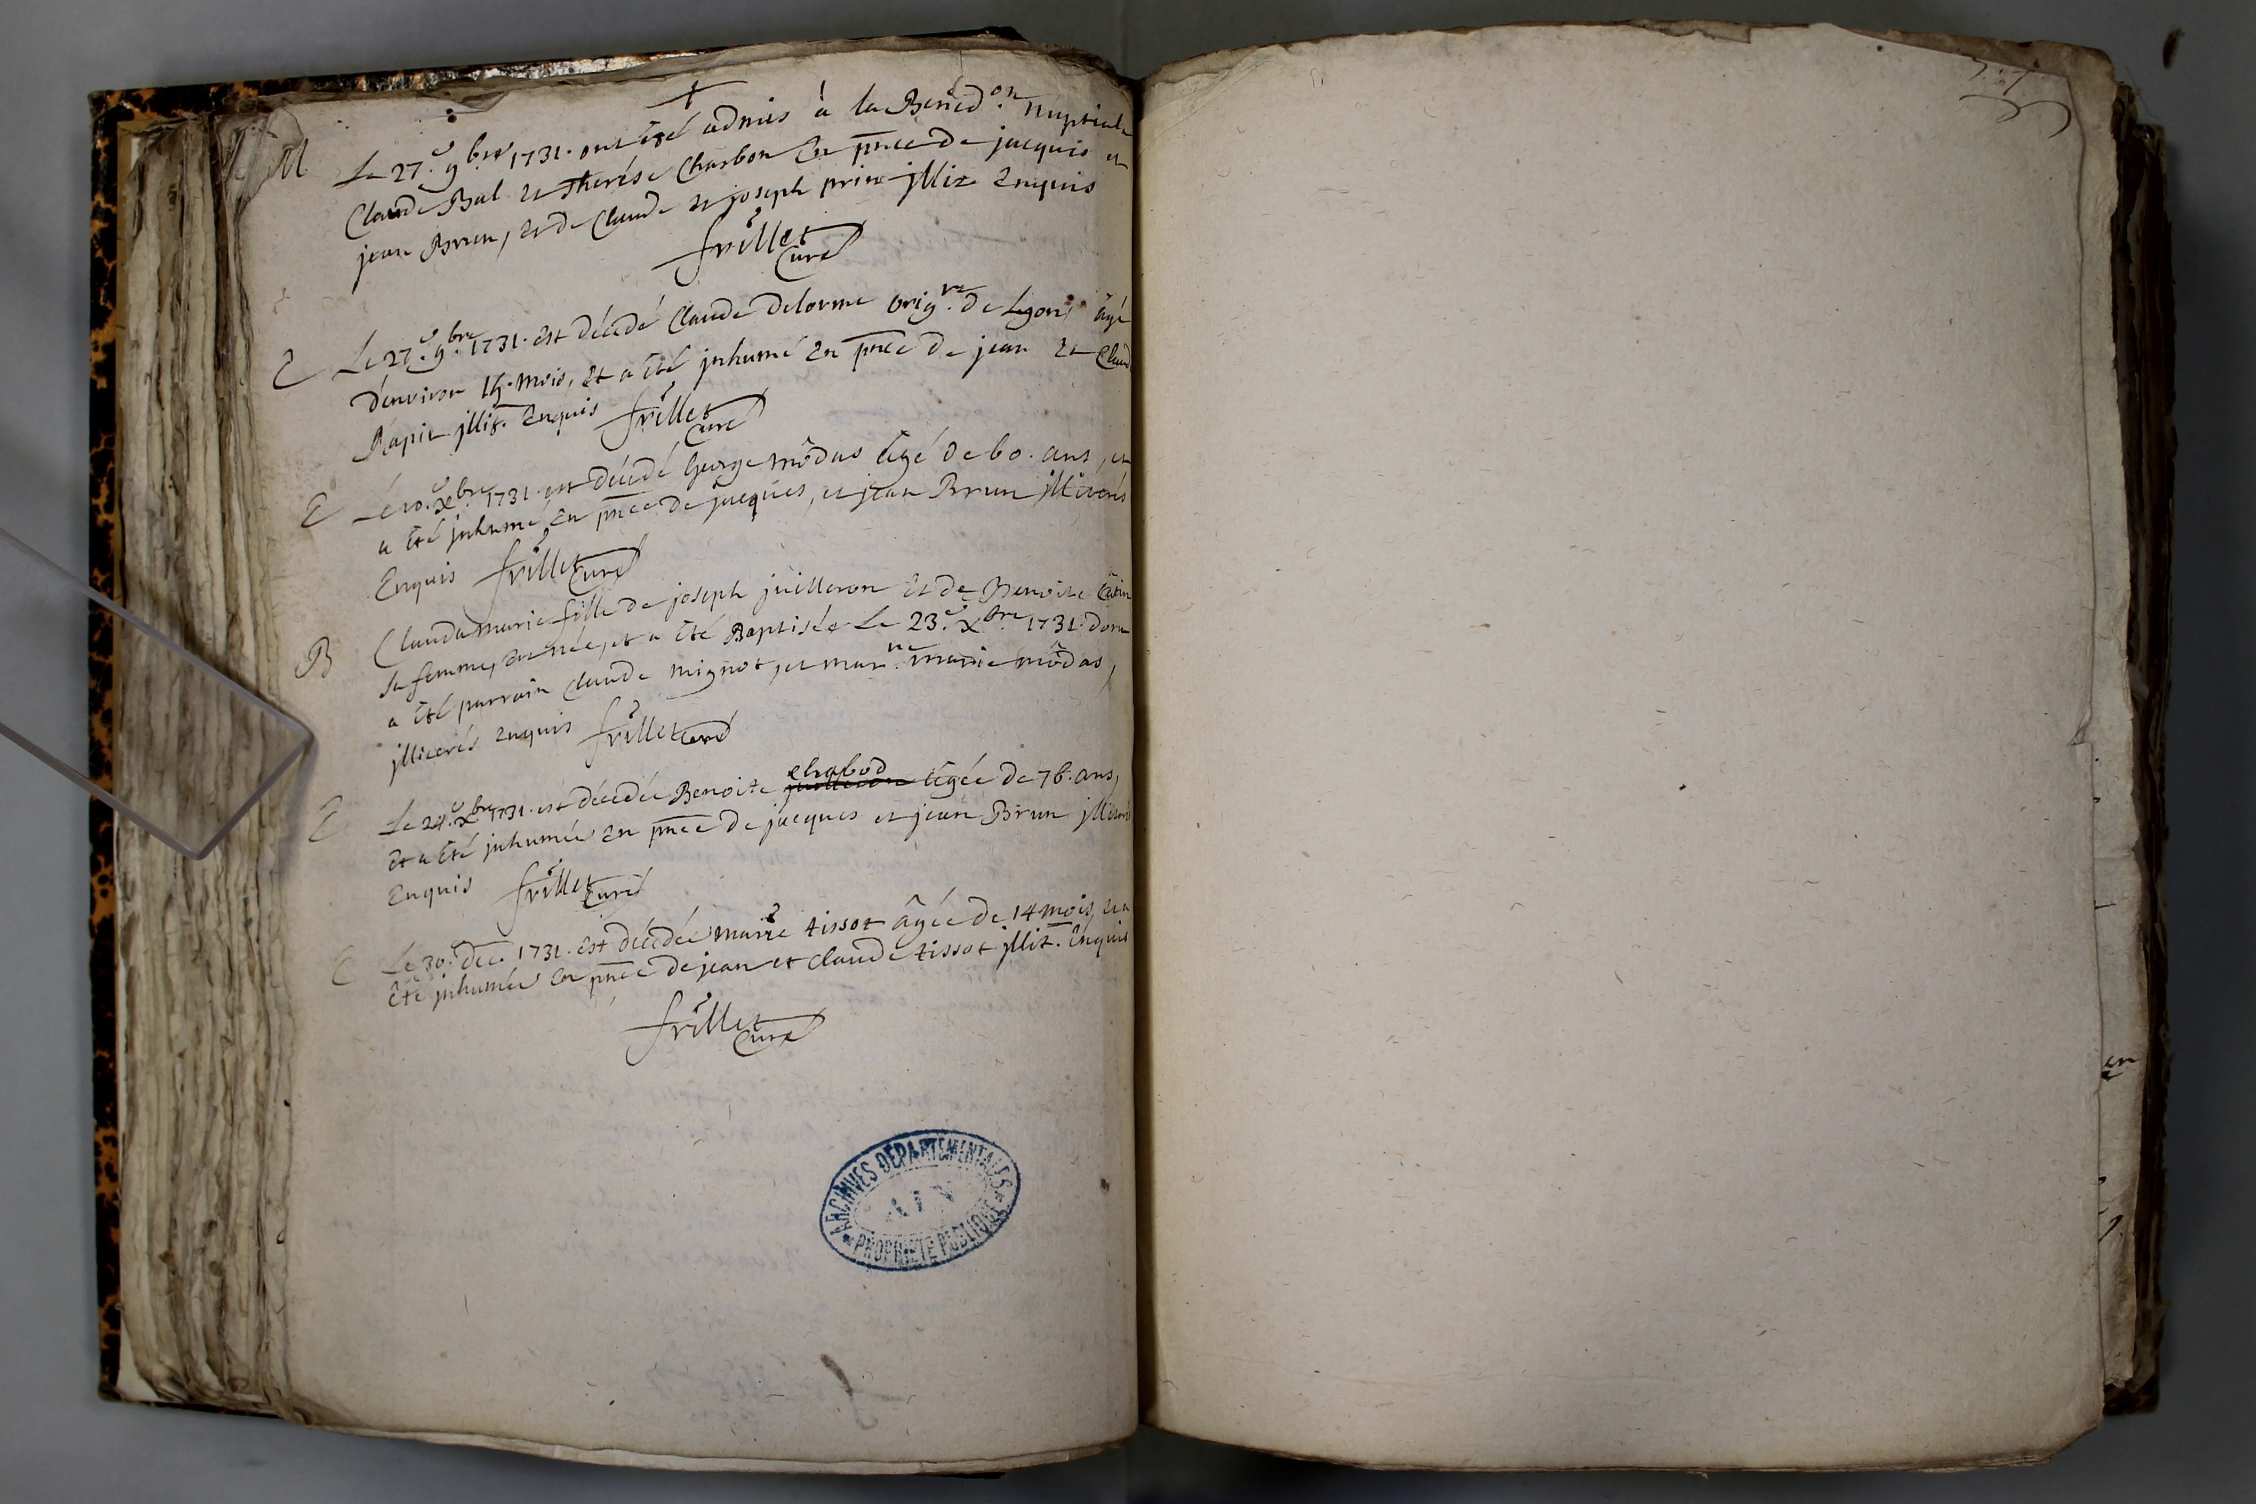 M Le 27.e 9.bre 1731. ont été admis à la Bened.on nuptiale
Claude Bal et Therése Charbon En pñce de jacques et
jean Brun, et de Claude et joseph prin jllit. Enquis
frillet
Curé
E Le 27.e 9.bre 1731. est décédé Claude Delorme orig.re de Lyon, âgé
d'environ 15. mois, Et a été jnhumé En pñce de jean et Claud
Rapit jllit. Enquis frillet
Curé
E Le 10.e Xbre 1731. est décédé George môdas âgé de 60. ans, et
a été jnhumé En pñce de jacques, et jean Brun jlliterés
Enquis frillet
Curé
B Clauda marie fille de joseph juilleron Et de Benoite
sa femme, est née, et a été Baptisée Le 23.e Xbre 1731. dont
a été parrain Claude mignot, et mar.ne marie môdas,
jlliterés Enquis frillet
Curé
E Le 24.e Xbre 1731. est décédée Benoite juilleron chabod âgée de 76. ans,
Et a été jnhumée En pñce de jacques et jean Brun jlliterés
Enquis frillet
Curé
E Le 30.e dec. 1731. est décédée marie tissot âgée de 14 mois, et a
été jnhumée En pñce de jean et Claude tissot jllit. Enquis
frillet
Curé
ARCHIVES DEPARTEMENTALES
AIN
PROPRIETE PUBLIQUE
en